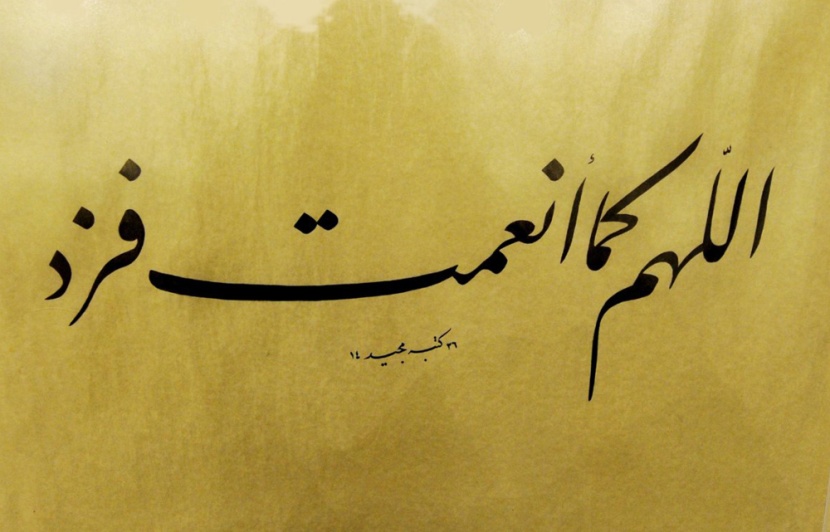 اللّهم كما أنعمت فزد
كتبه مجيد ١٤٣٦